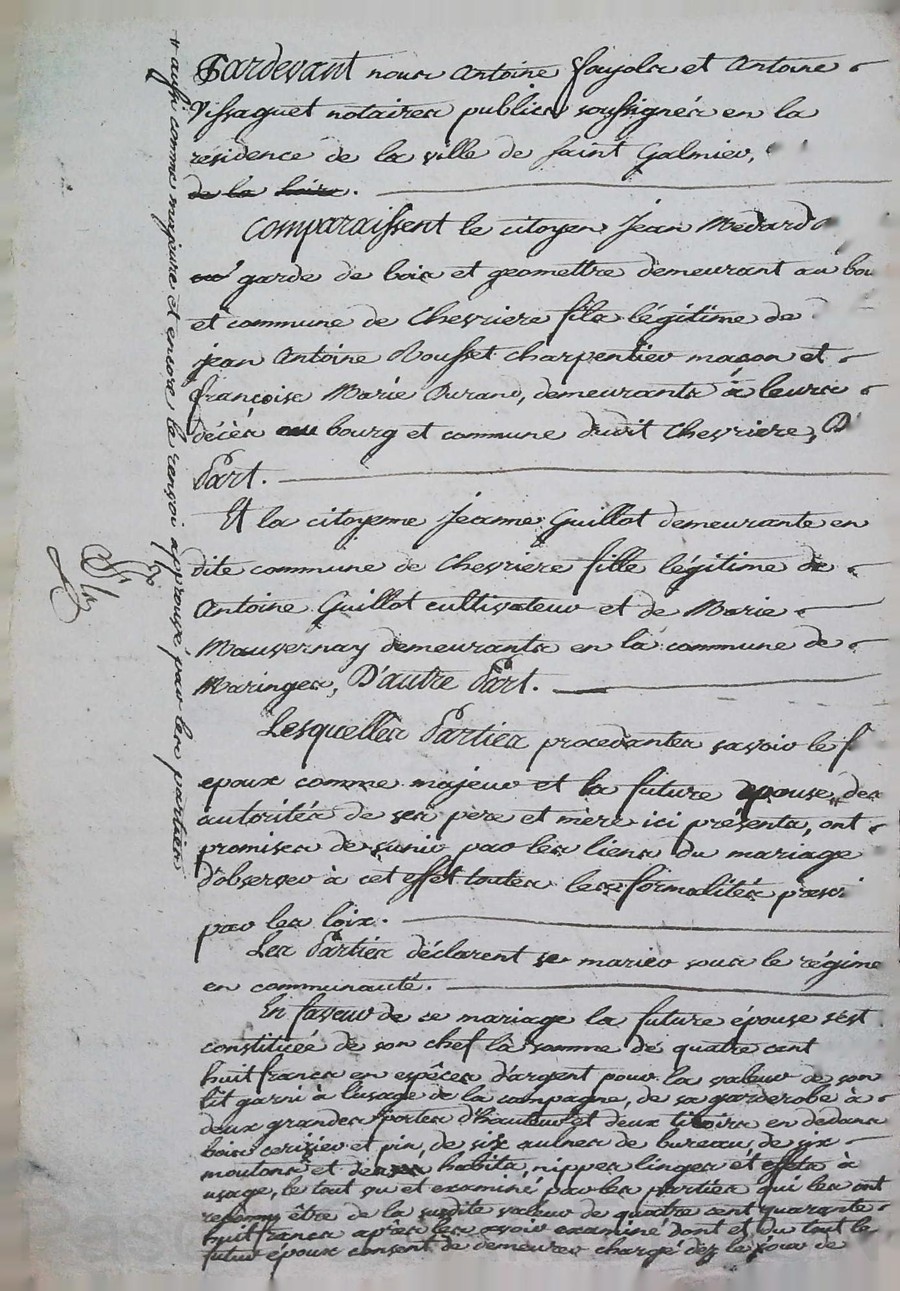 Pardevant nous Antoine Fayolas et Antoine
Vissaguet notaires publics soussignés en la
résidence de la ville de Saint Galmier,
de la loire.
Comparaissent le citoyen Jean Medard
garde de bois et geomettre demeurant au bou
et commune de Chevriere fils légitime de
jean Antoine Rousset charpentier maçon et
françoise Marie Durand, demeurants à leurs
décès au bourg et commune dudit Chevriere, D'
Part.
Et la citoyenne Jeanne Guillot demeurante en
dite commune de Chevriere fille légitime de
Antoine Guillot cultivateur et de Marie
Mauvernay demeurants en la commune de
Maringes, D'autre Part.
Lesquelles Parties procedantes savoir le f
epoux comme majeur et la future epouse, des
autorités de ses pere et mère ici présents, ont
promises de s'unir par les liens du mariage
d'observer à cet effet toutes les formalités prescri
par les loix.
Les Parties déclarent se marier sous le régime
en communauté.
En faveur de ce mariage la future épouse s'est
constituée de son chef la somme de quatre cent
huit francs en espèces d'argent pour la valeur de son
lit garni à l'usage de la campagne, de sa garderobe à
deux grandes portes d'hauteur et deux tiroirs en dedans
bois cerisier et pin, de six aulnes de bureau, de six
moutons et de ses habits, nippes linges et effets à
usage, le tout vu et examiné par les parties qui les ont
reconnu être de la susdite valeur de quatre cent quarante
huit francs après les avoir examiné dont et du tout le
futur epoux consent de demeurer chargé dez le jour de
+ aussi comme majeure et encore le renvoi approuvé par les parties